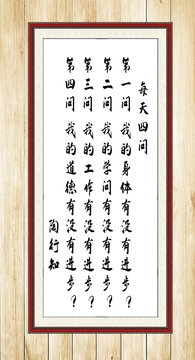 每天四问
第一问我的身体有没有进步？
第二问我的学问有没有进步？
第三问我的工作有没有进步？
第四问我的道德有没有进步？
陶行知